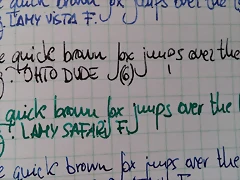 quick brown fox jumps over the
LAMY VISTA F.
e quick brown fox jumps over the
: OHTO DUDE (6)
quick brown fox jumps over the l
: LAMY SAFARI F.
e quick brown fox jumps over the